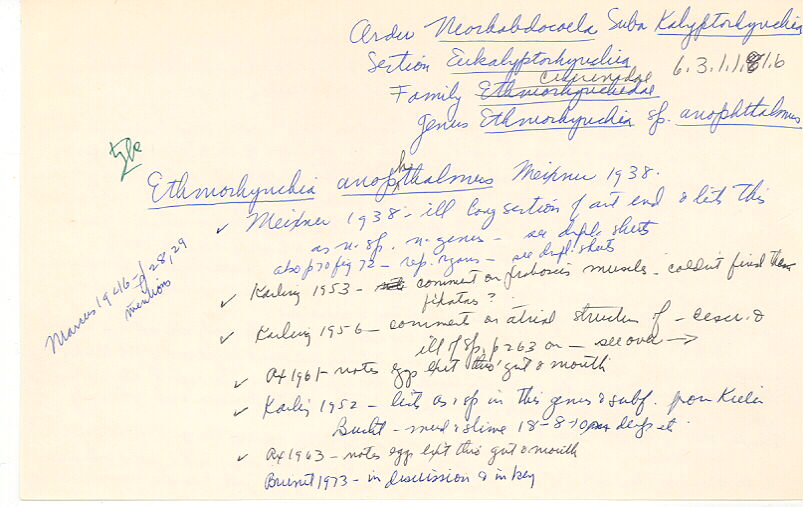 Order Neorhabdocoela Subo Kalyptorhynchia
Section Eukalyptorhynchia
Cicerinidae 6.3.1.1.8.1.6
Family Ethmorhynchidae
Genus Ethmorhynchia sp. anophthalmus
Ethmorhynchia anophthalmus Meixner 1938.
✓ Meixner 1938 - ill long section of ant end & lists this
as n. sp. n. genus - see dupl. sheets
also p 70 fig 72 - rep. organs - see dupl. sheets
Marcus 1946 - p 28, 29
mentions
✓ Karling 1953 - comment on proboscis muscle - couldn't find these
fixators?
✓ Karling 1956 - comments on atrial structure of - descr. &
ill of sp. p 263 on - see over →
✓ Ax 1961 - notes eggs exit thro' gut & mouth
✓ Karling 1952 - lists as 1 sp in this genus & subf. from Kieler
Bucht - mud & slime 18-8-10 deep et.
✓ Ax 1963 - notes eggs exit thro' gut & mouth
Brunet 1973 - in discussion & in key